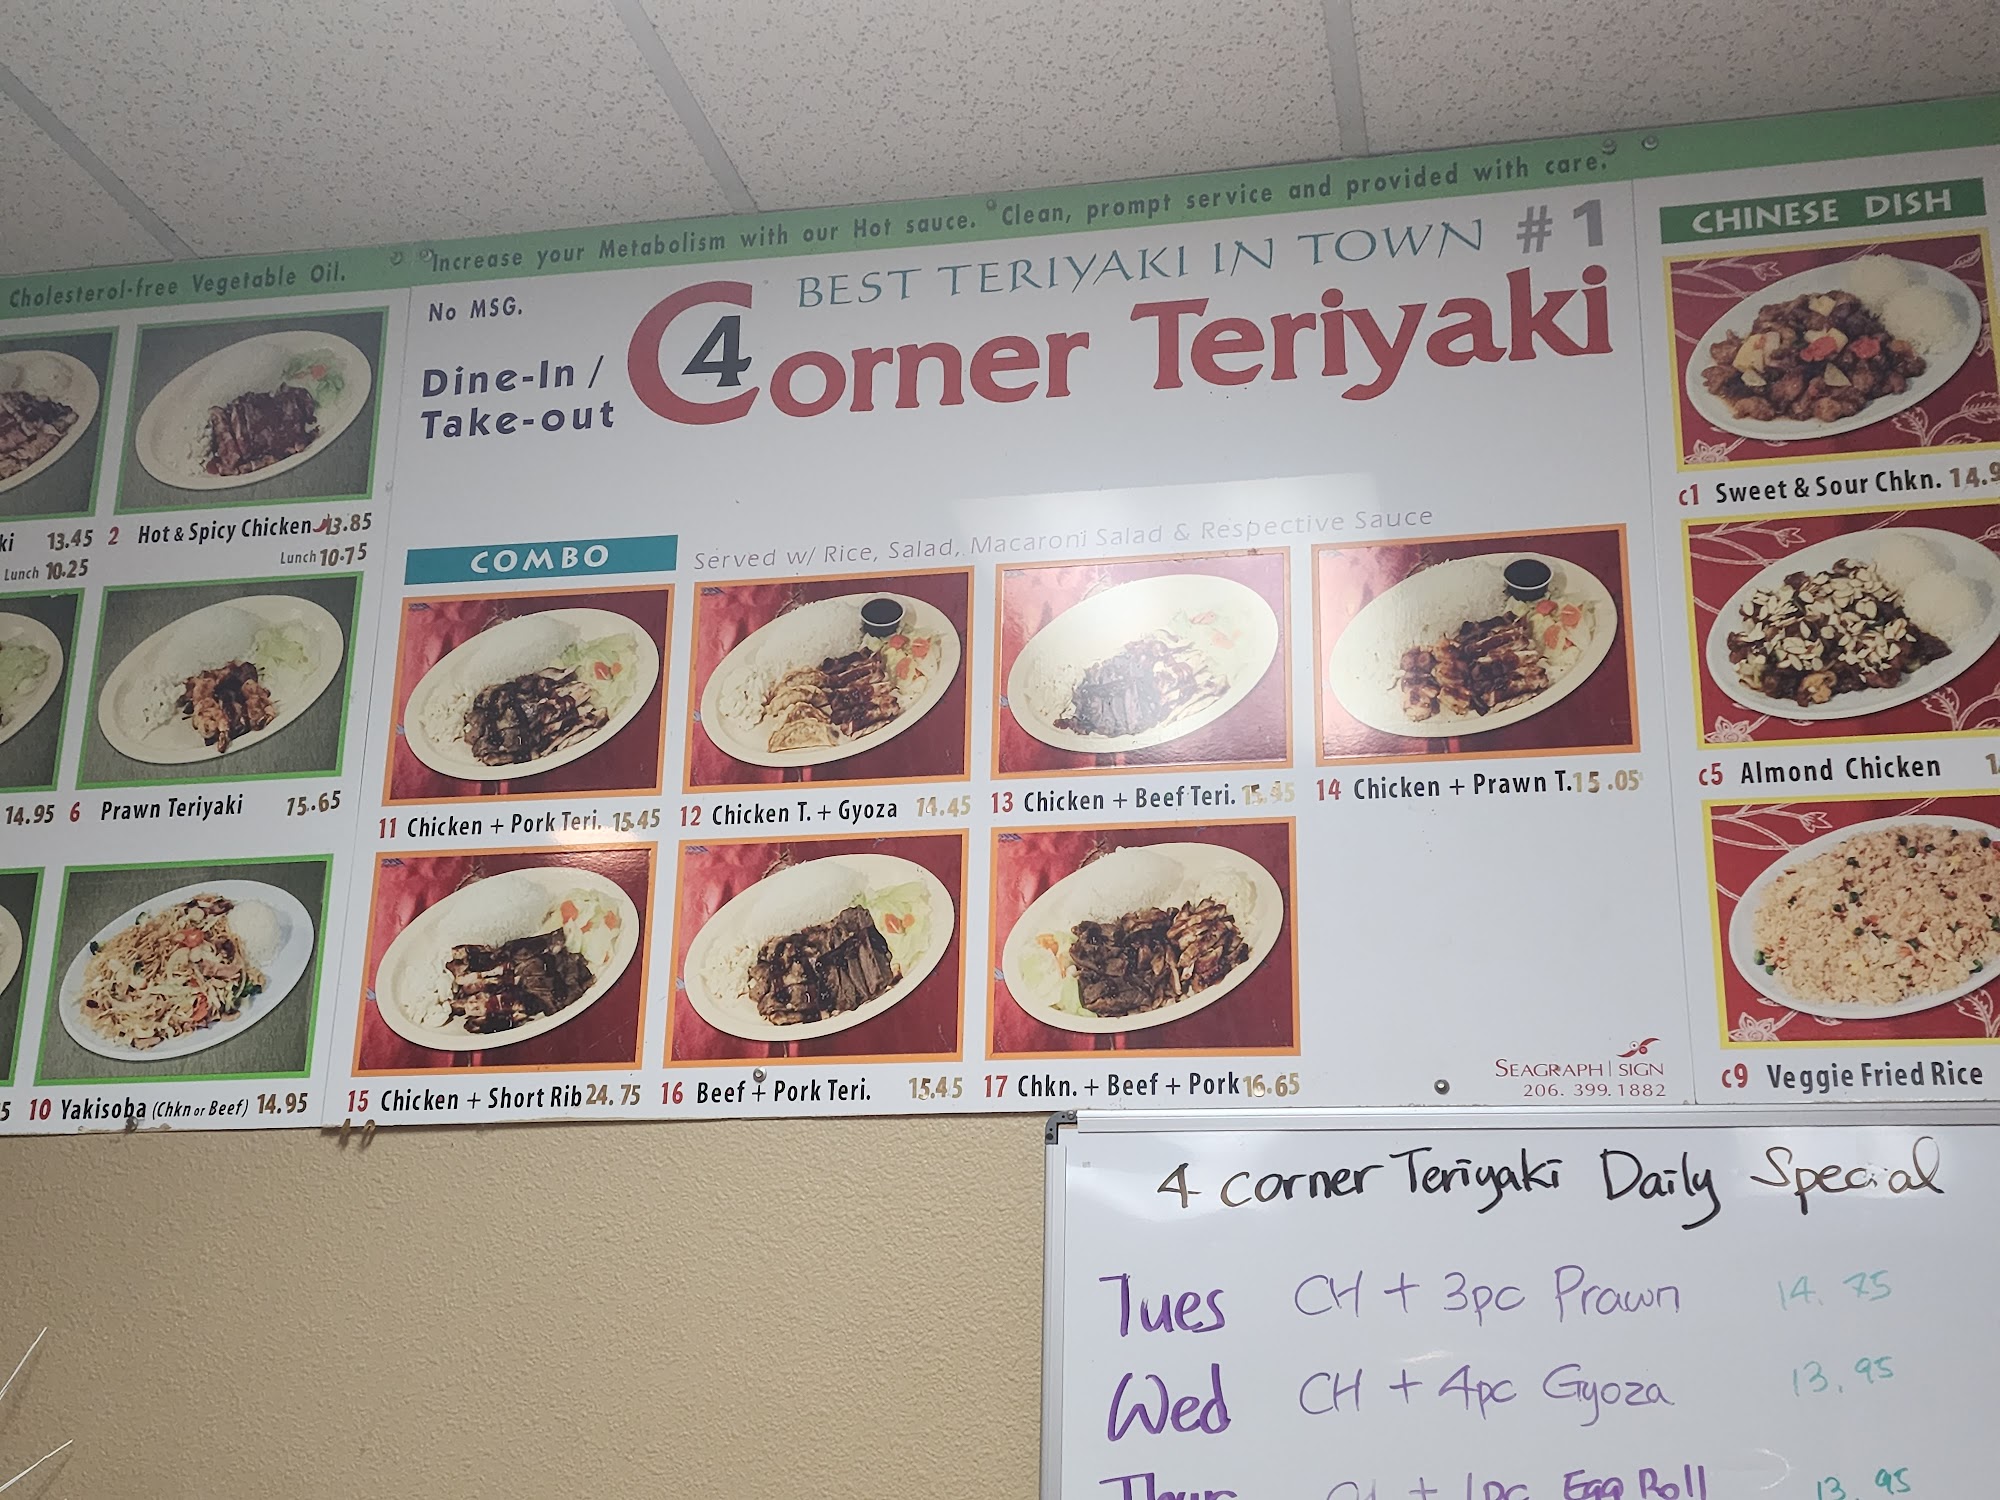 Cholesterol-free Vegetable Oil.
"Increase your Metabolism with our Hot sauce. "Clean, prompt service and provided with care."
No MSG.
BEST TERIYAKI IN TOWN #1
Dine-In /
Take-out
4 Corner Teriyaki
CHINESE DISH
13.45
Lunch 10.25
2 Hot & Spicy Chicken 13.85
Lunch 10.75
14.95
6 Prawn Teriyaki 15.65
10 Yakisoba (Chkn or Beef) 14.95
COMBO
Served w/ Rice, Salad, Macaroni Salad & Respective Sauce
11 Chicken + Pork Teri. 15.45
12 Chicken T. + Gyoza 14.45
13 Chicken + Beef Teri. 15.45
14 Chicken + Prawn T. 15.05
15 Chicken + Short Rib 24.75
16 Beef + Pork Teri. 15.45
17 Chkn. + Beef + Pork 16.65
SEAGRAPH | SIGN
206. 399. 1882
c1 Sweet & Sour Chkn.
c5 Almond Chicken
c9 Veggie Fried Rice
4 corner Teriyaki Daily Special
Tues CH + 3pc Prawn 14.75
Wed CH + 4pc Gyoza 13.95
Egg Roll 13.95